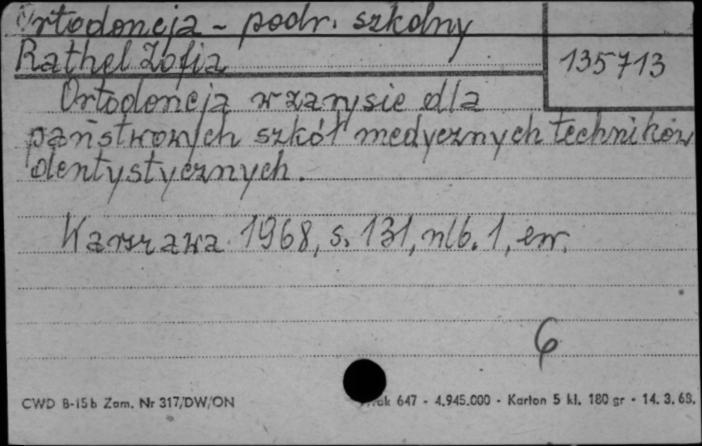 Ortodoncja - podr. szkolny
Rathel Zofia
135713
Ortodoncja w zarysie dla
państwowych szkół medycznych techników
dentystycznych.
Warszawa 1968, s. 131, nlb. 1,
6
CWD B-15b Zam. Nr 317/DW/ON
647 - 4.945.000 - Karton 5 kl. 180 gr - 14. 3. 68.